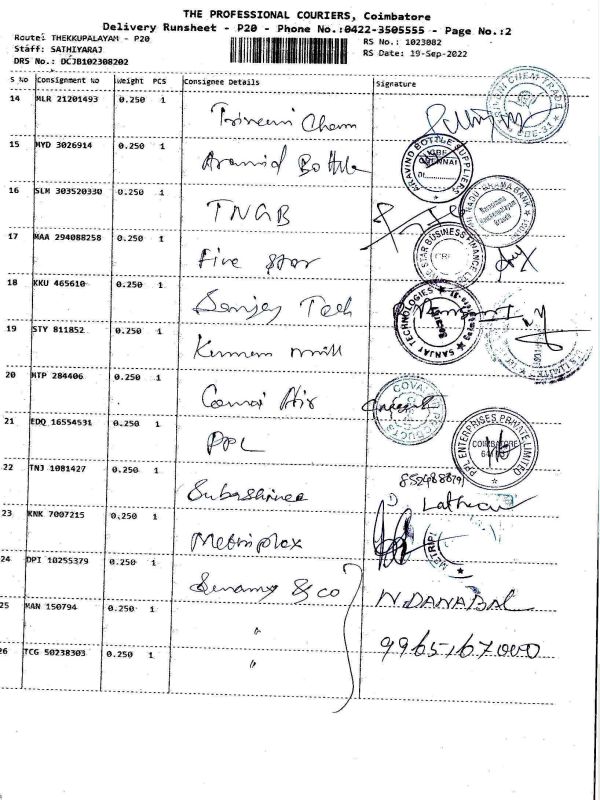 THE PROFESSIONAL COURIERS, Coimbatore
Delivery Runsheet - P20 - Phone No.:0422-3505555 - Page No.:2
Route: THEKKUPALAYAM - P20
Staff: SATHIYARAJ
DRS No.: DCJB102308202
RS No.: 1023082
RS Date: 19-Sep-2022
S No Consignment No Weight PCS Consignee Details Signature
14 MLR 21201493 0.250 1 Triveni Chem
15 MYD 3026914 0.250 1 Aravind Bottle
ARAVIND BOTTLE SUPPLIERS
16 SLM 303520330 0.250 1 TNGB
17 MAA 294088258 0.250 1 Five Star
STAR BUSINESS FINANCE
18 KKU 465610 0.250 1 Sanjey Tech
SANJAY TECHNOLOGIES
Security
19 STY 811852 0.250 1 mill
20 HTP 284406 0.250 1 Air
21 EDQ 16554531 0.250 1 PPL
PPL ENTERPRISES PRIVATE LIMITED
COIMBATORE
22 TNJ 1081427 0.250 1 Subashinee
23 KNK 7007215 0.250 1 Metriplex
METRIP
24 DPI 10255379 0.250 1 & co
N DANABAL
25 MAN 150794 0.250 1 "
9965167000
26 TCG 50238303 0.250 1 "